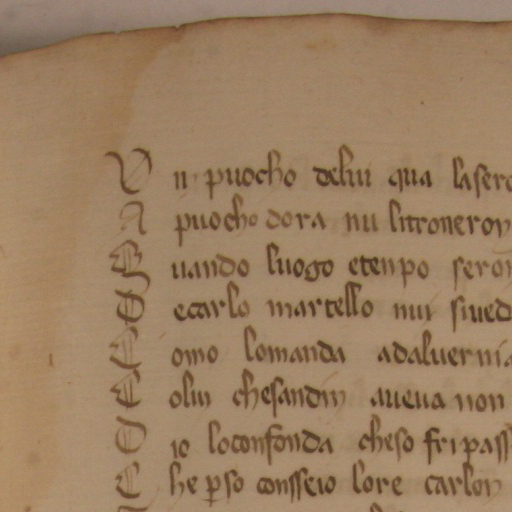 V n puocho delui qua lasero
A puocho dora nu litroneron
Q uando luogo etenpo seron
S ecarlo martello nui siued
C omo lomanda adaluernia
C olui chesandin aueua non
D io loconfonda cheso fripass
C he p̱so consseio lore carlon